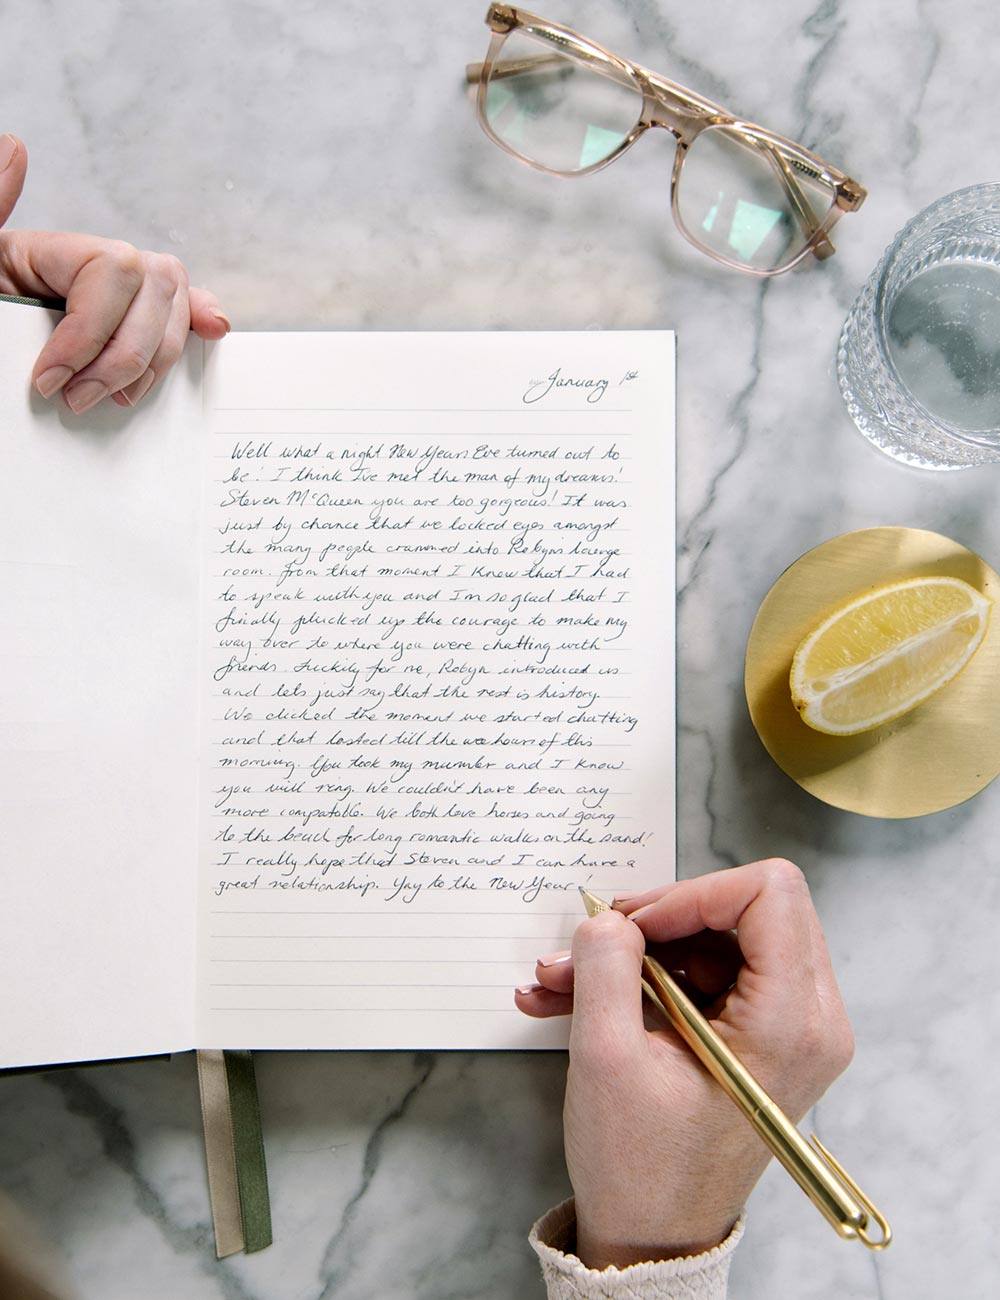 January 1st
Well what a night New Years Eve turned out to
be! I think I've met the man of my dreams!
Steven McQueen you are too gorgeous! It was
just by chance that we locked eyes amongst
the many people crammed into Robyns lounge
room. From that moment I knew that I had
to speak with you and I'm so glad that I
finally plucked up the courage to make my
way over to where you were chatting with
friends. Luckily for me, Robyn introduced us
and lets just say that the rest is history.
We clicked the moment we started chatting
and that lasted till the wee hours of this
morning. You took my number and I know
you will ring. We couldn't have been any
more compatable. We both love horses and going
to the beach for long romantic walks on the sand!
I really hope that Steven and I can have a
great relationship. Yay to the New Year!